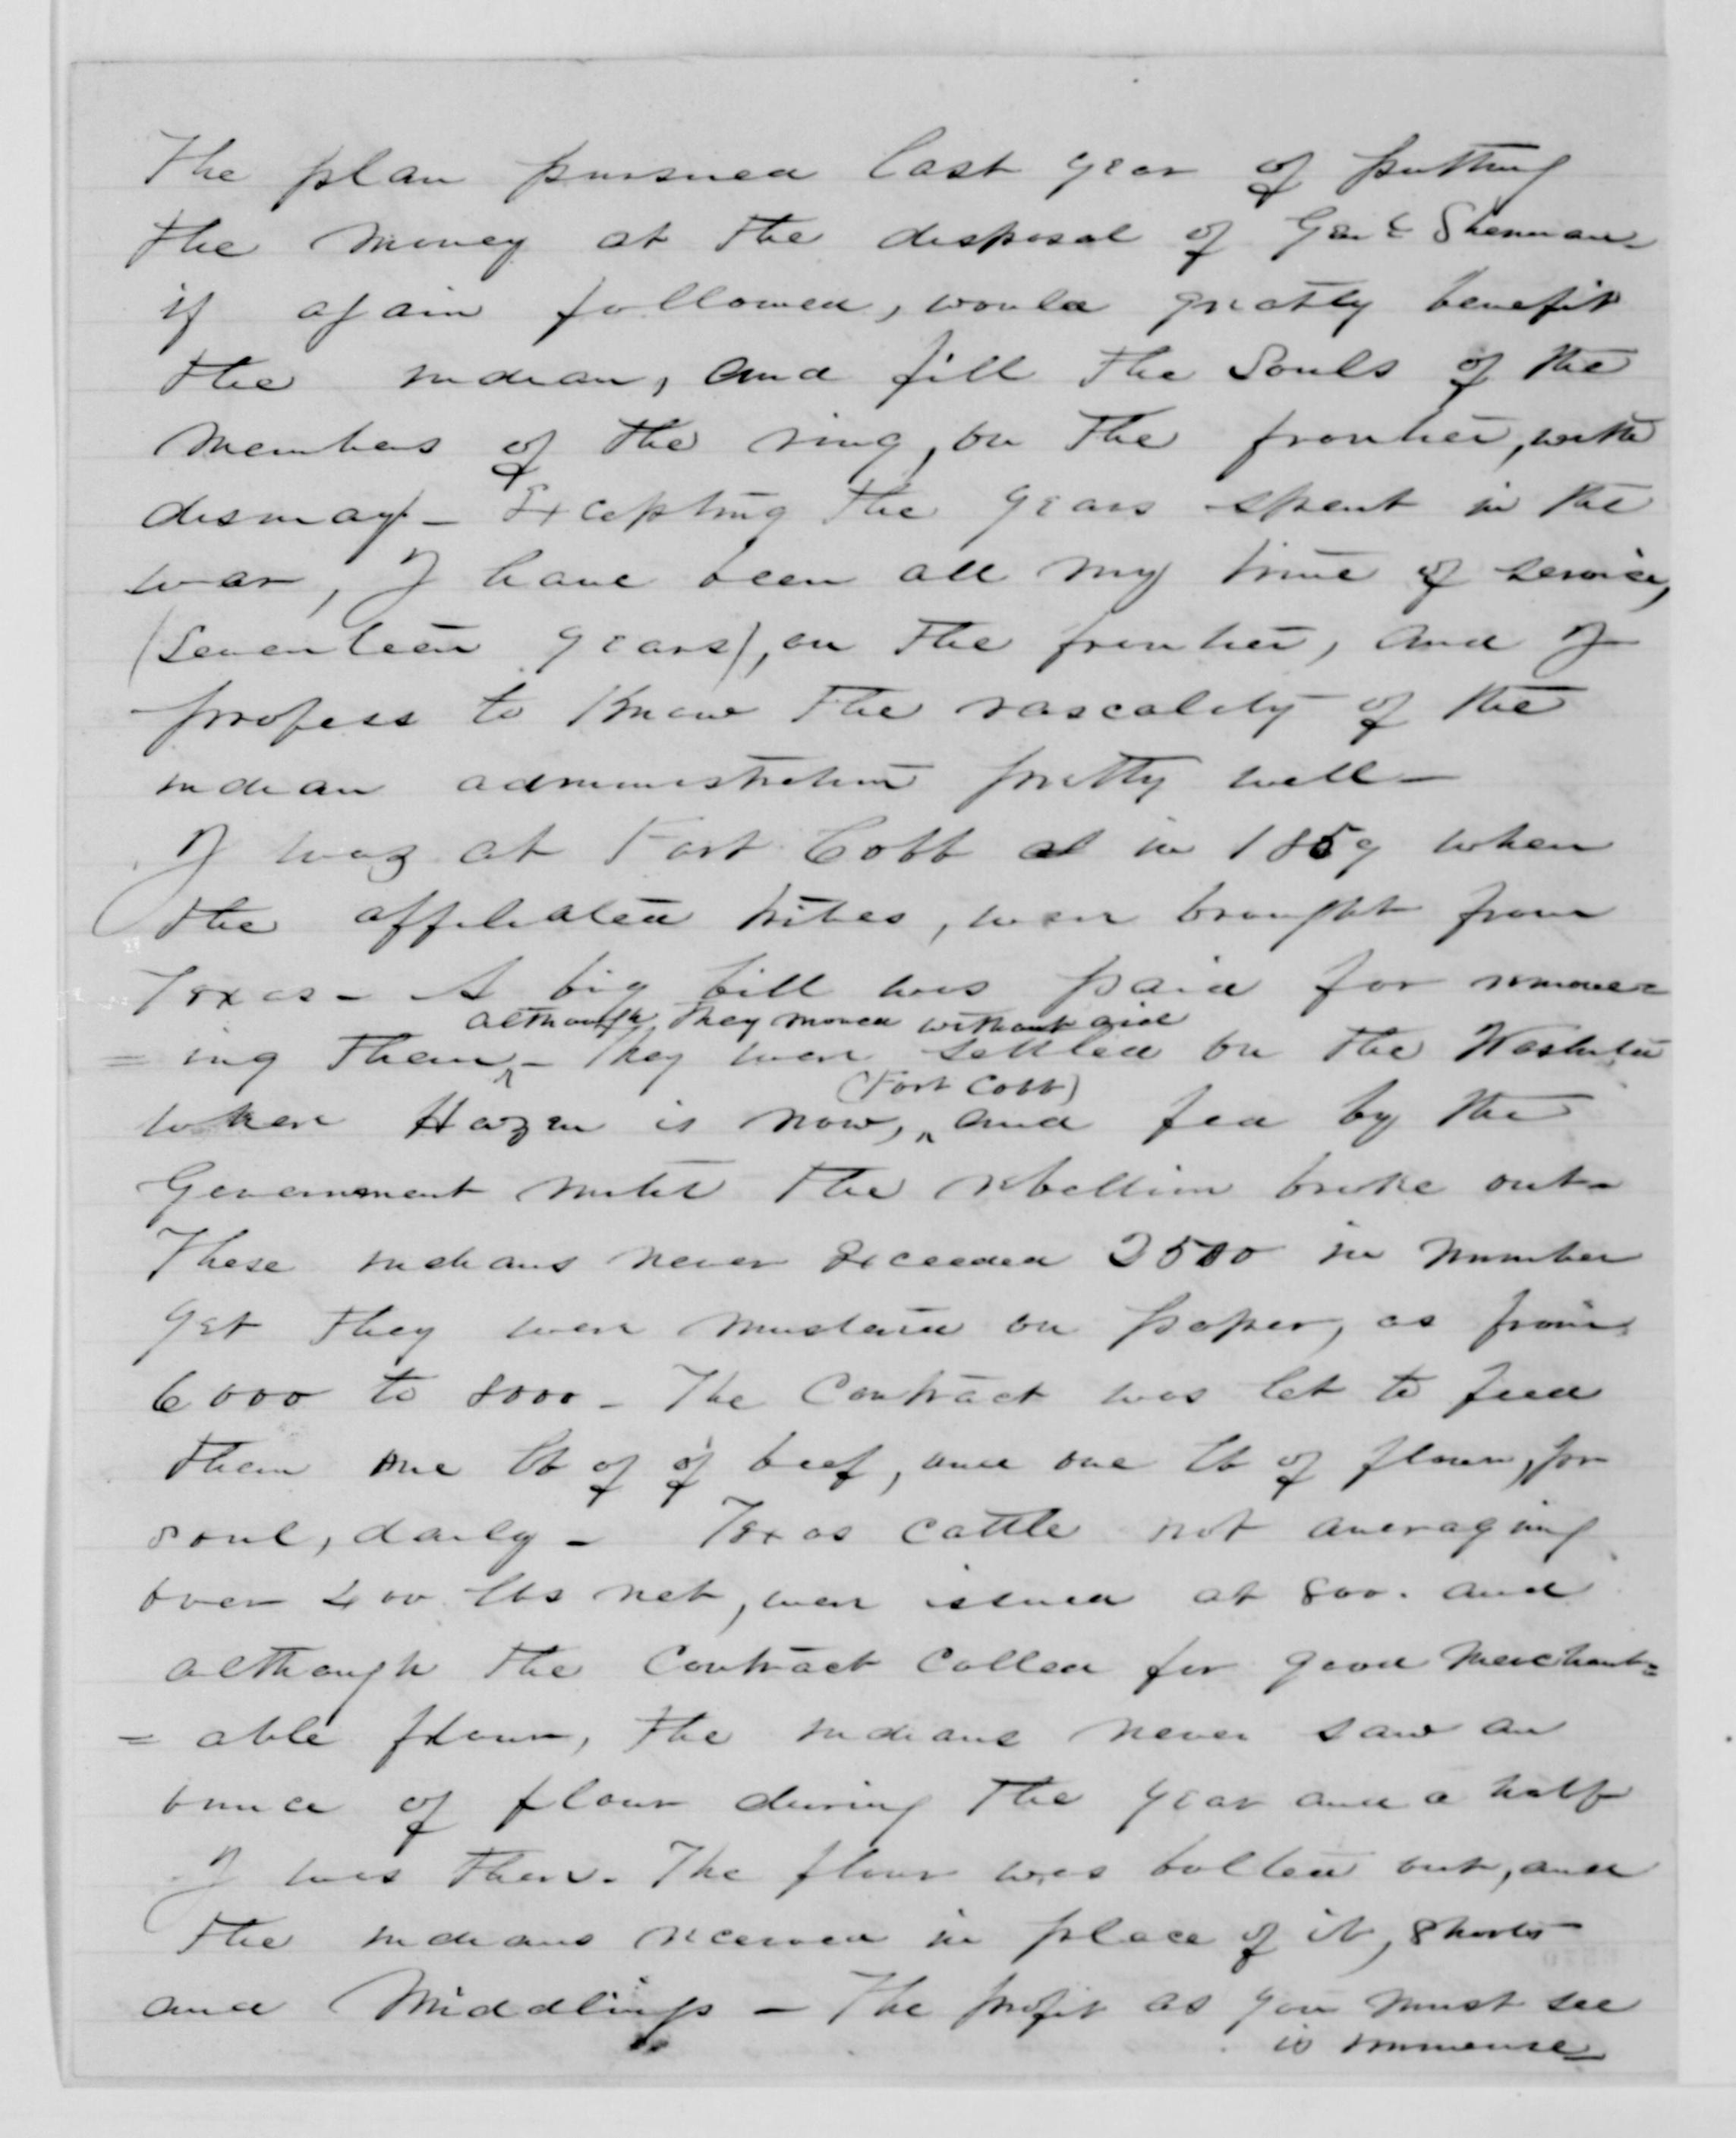 The plan pursued last year of putting
the money at the disposal of Genl Sherman
if again followed, would greatly benefit
the indian, and fill the Souls of the
members of the ring, on the frontier, with
dismay - Excepting the years spent in the
war, I have been all my time of service,
(Seventeen years), on the frontier, and I
profess to know the rascality of the
indian administration pretty well -
I was at Fort Cobb in 1859 when
the affiliated tribes, were brought from
Texas - A big bill was paid for remov=
although they moved without aid
= ing them - They were settled on the Washita
(Fort Cobb)
where Hazen is now, and fed by the
Government until the rebellion broke out -
These indians never exceeded 2500 in number
yet they were mustered on paper, as from
6000 to 8000 - The Contract was let to feed
them one lb of of beef, and one lb of flour, per
soul, daily - Texas cattle not averaging
over 400 lbs net, were issued at 800. and
although the Contract called for good merchant=
= able flour, the indians never saw an
ounce of flour during the year and a half
I was there. The flour was bolted out, and
the indians received in place of it, Shorts
and Middlings - The profit as you must see
is immense -